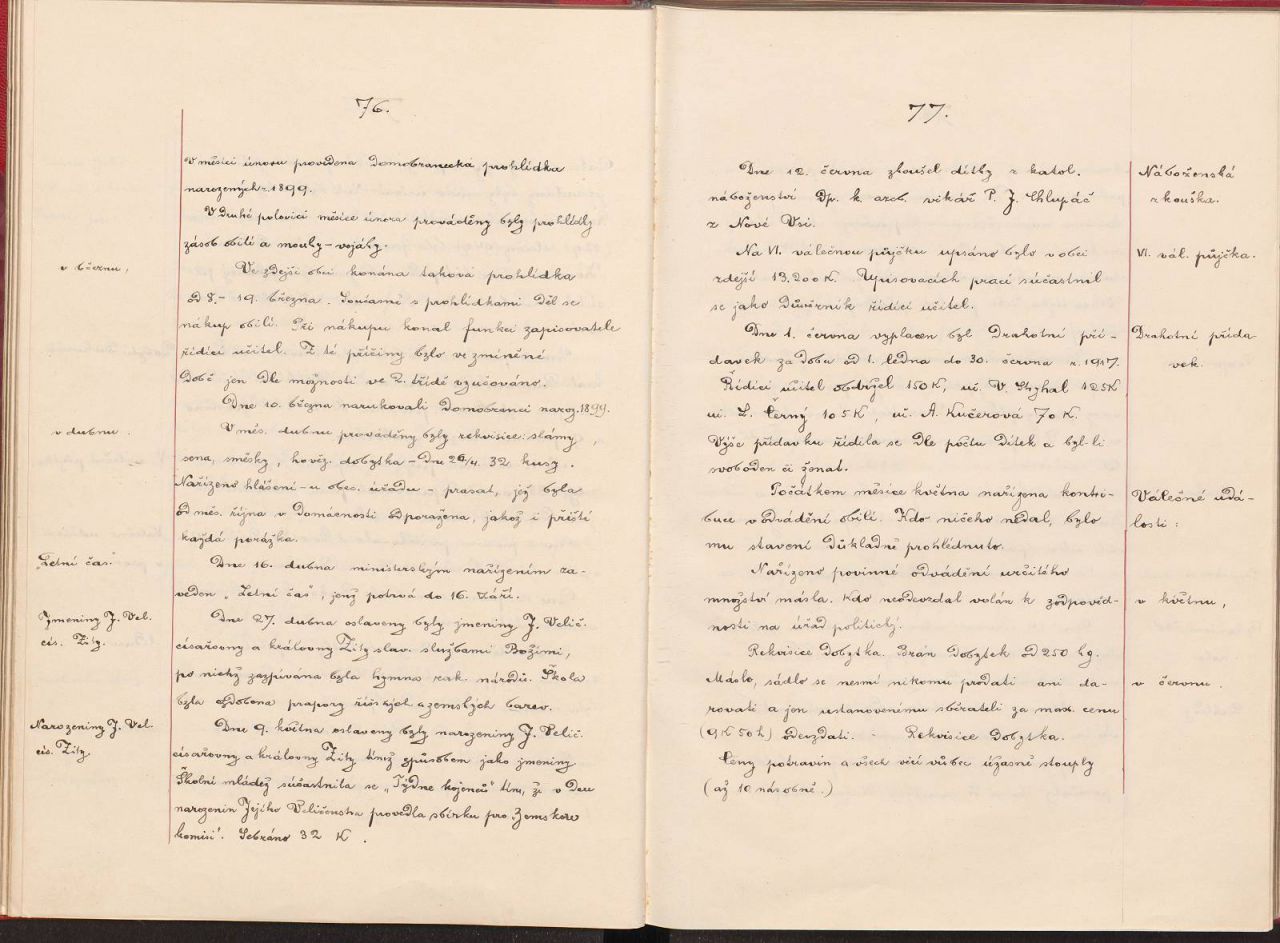 76.
V měsíci únoru provedena domobranecká prohlídka
narozených r. 1899.
V druhé polovici měsíce února prováděny byly prohlídky
zásob obilí a mouky – vojáky.
v březnu,
Ve zdejší obci konána taková prohlídka
od 8. – 19. března. Současně s prohlídkami děl se
nákup obilí. Při nákupu konal funkci zapisovatele
řídící učitel. Z té příčiny bylo ve zmíněné
době jen dle možnosti ve 2. třídě vyučováno.
Dne 10. března narukovali domobranci naroz. 1899.
v dubnu.
V měs. dubnu prováděny byly rekvisice: slámy,
sena, směsky, hověz. dobytka – Dne 26/4. 32 kusy.
Nařízeno hlášení – u obec. úřadu – prasat, jež byla
od měs. října v domácnosti odporažena, jakož i příští
každá porážka.
„Letní čas.“
Dne 16. dubna ministerským nařízením za-
veden „Letní čas“, jenž potrvá do 16. září.
Jmeniny J. Vel.
cís. Zity.
Dne 27. dubna oslaveny byly jmeniny J. Velič.
císařovny a královny Zity slav. službami Božími,
po nichž zazpívána byla hymna rak. národů. Škola
byla ozdobena prapory říšských a zemských barev.
Narozeniny J. Vel.
cís. Zity.
Dne 9. května oslaveny byly narozeniny J. Velič.
císařovny a královny Zity týmž způsobem jako jmeniny
Školní mládež súčastnila se „Týdne kojenců“ tím, že v den
narozenin Jejího Veličenstva provedla sbírku pro „Zemskou
komisi“. Sebráno 32 K.
77.
Dne 12. června zkoušel dítky z katol.
náboženství Dp. k. arcb. vikář P. J. Chlupáč
z Nové Vsi.
Náboženská
zkouška.
Na VI. válečnou půjčku upsáno bylo v obci
zdejší 13.200 K. Upisovacích prací súčastnil
se jako důvěrník řídící učitel.
VI. vál. půjčka.
Dne 1. června vyplacen byl drahotní pří-
davek za dobu od 1. ledna do 30. června r. 1917.
Řídící učitel obdržel 150 K, uč. V. Stříhal 125 K
uč. L. Černý 105 K, uč. A. Kučerová 70 K
Výše přídavku řídila se dle počtu dítek a byl-li
svoboden či ženat.
Drahotní přída-
vek.
Počátkem měsíce května nařízena kontri-
buce v odvádění obilí. Kdo ničeho nedal, bylo
mu stavení důkladně prohlédnuto.
Válečné udá-
losti:
Nařízeno povinné odvádění určitého
množství másla. Kdo neodevzdal volán k zodpověd-
nosti na úřad politický.
v květnu,
Rekvisice dobytka. Brán dobytek od 250 kg.
Máslo, sádlo se nesmí nikomu prodati ani da-
rovati a jen ustanovenému sběrateli za max. cenu
(9 K 50 h) odevzdati. – Rekvisice dobytka.
v červnu.
Ceny potravin a všech věcí vůbec úžasně stouply
(až 10 násobně.)